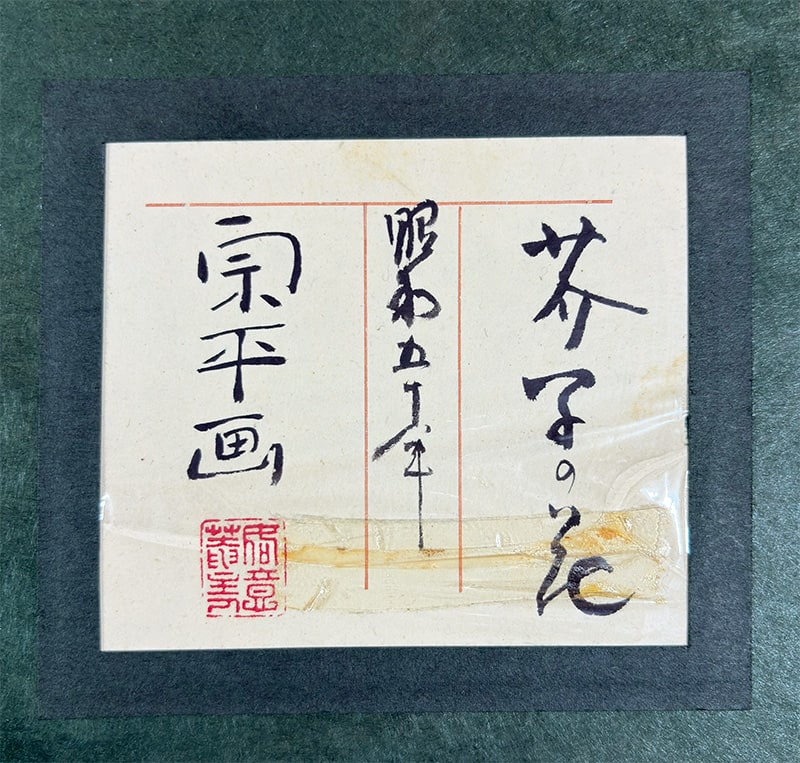 芥子の花
昭和五十年
宗平画